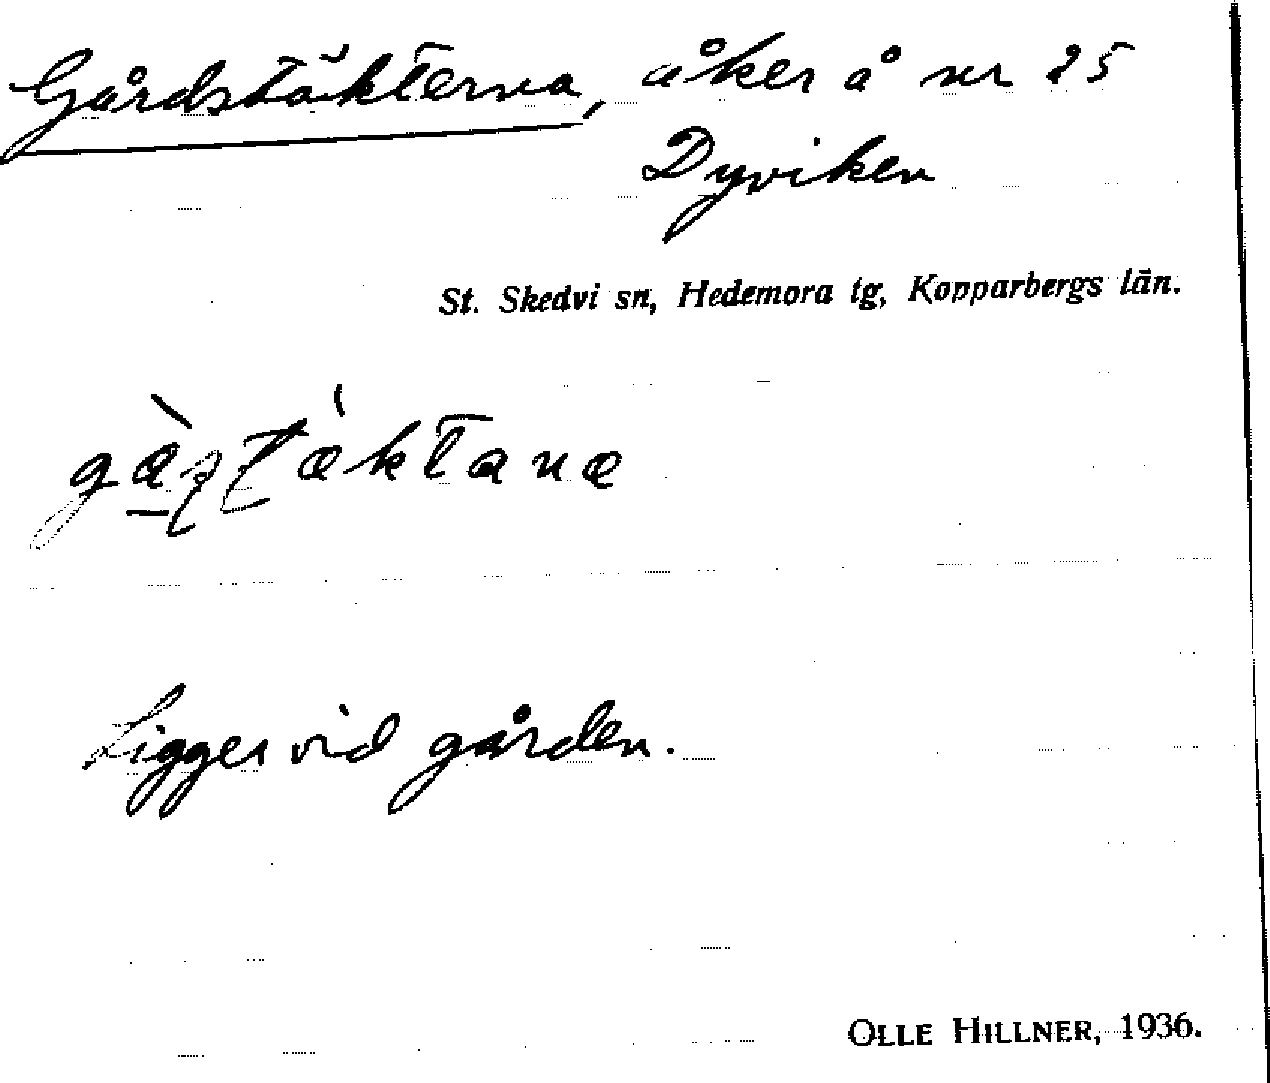 Gårdstäkterna, åker å nr 25
Dyviken
St. Skedvi sn, Hedemora tg, Kopparbergs län.
Ligger vid gården.
OLLE HILLNER, 1936.